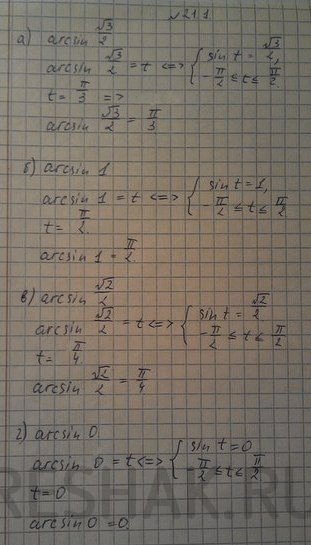 √21.1.
а) arcsin √3/2
arcsin √3/2 = t <=> { sin t = √3/2,
-π/2 ≤ t ≤ π/2
t = π/3 =>
arcsin √3/2 = π/3
б) arcsin 1
arcsin 1 = t <=> { sin t = 1,
-π/2 ≤ t ≤ π/2
t = π/2.
arcsin 1 = π/2.
в) arcsin √2/2
arcsin √2/2 = t <=> { sin t = √2/2
-π/2 ≤ t ≤ π/2
t = π/4.
arcsin √2/2 = π/4
г) arcsin 0
arcsin 0 = t <=> { sin t = 0
-π/2 ≤ t ≤ π/2
t = 0
arcsin 0 = 0.
RESHAK.RU